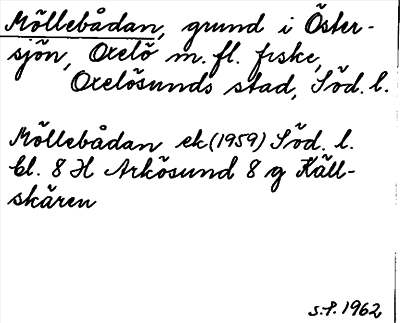 Möllebådan, grund i Öster-
sjön, Oxelö m. fl. fiske,
Oxelösunds stad, Söd. l.
Möllebådan ek (1959) Söd. l.
bl. 8 H Arkösund 8 g Käll-
skären
s.P. 1962